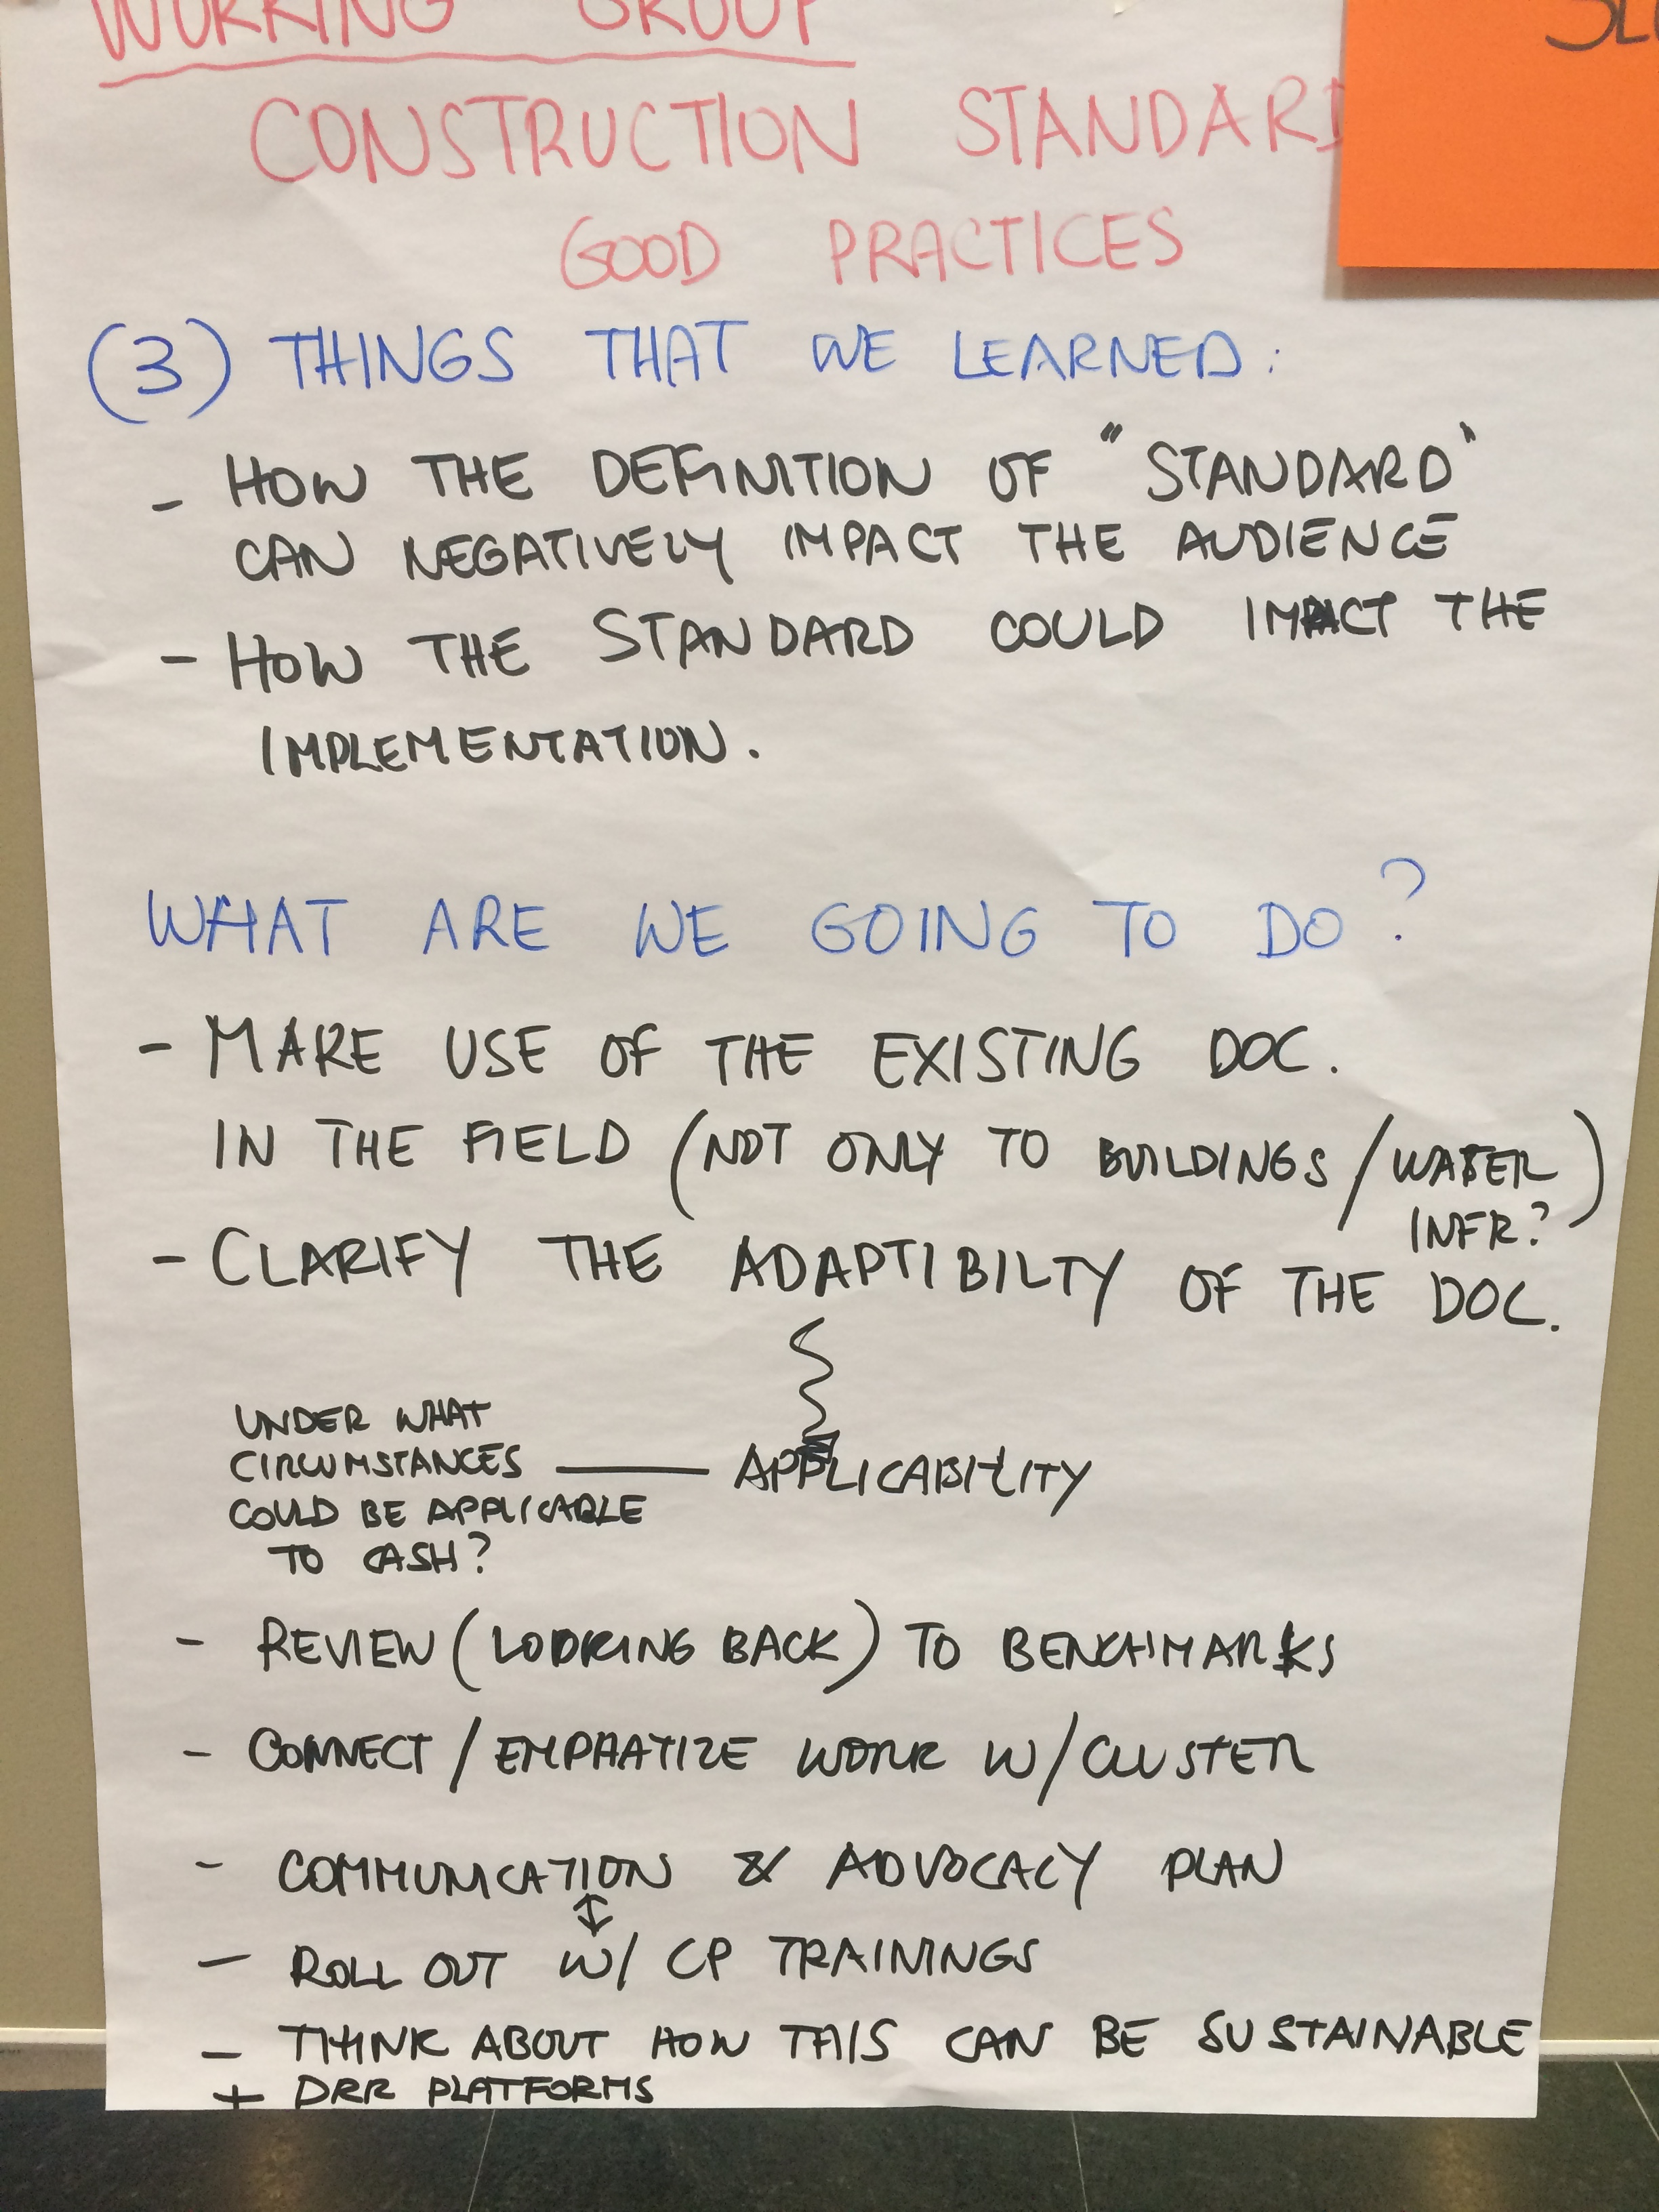 WORKING GROUP
CONSTRUCTION STANDARD
GOOD PRACTICES
(3) THINGS THAT WE LEARNED:
- HOW THE DEFINITION OF "STANDARD"
CAN NEGATIVELY IMPACT THE AUDIENCE
- HOW THE STANDARD COULD IMPACT THE
IMPLEMENTATION.
WHAT ARE WE GOING TO DO?
- MAKE USE OF THE EXISTING DOC.
IN THE FIELD (NOT ONLY TO BUILDINGS / WATER)
INFR?
- CLARIFY THE ADAPTIBILTY OF THE DOC.
APPLICABILITY
UNDER WHAT
CIRCUMSTANCES
COULD BE APPLICABLE
TO CASH?
- REVIEW (LOOKING BACK) TO BENCHMARKS
- CONNECT / EMPHATIZE WORK W/ CLUSTER
- COMMUNICATION & ADVOCACY PLAN
↕
- ROLL OUT W/ CP TRAININGS
- THINK ABOUT HOW THIS CAN BE SUSTAINABLE
+ DRR PLATFORMS